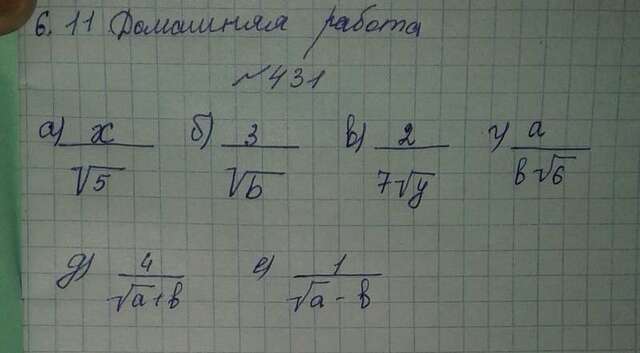 6.11 Домашняя работа
№431
а) x/√5 б) 3/√b в) 2/7√y г) a/b√6
д) 4/√a+b е) 1/√a-b